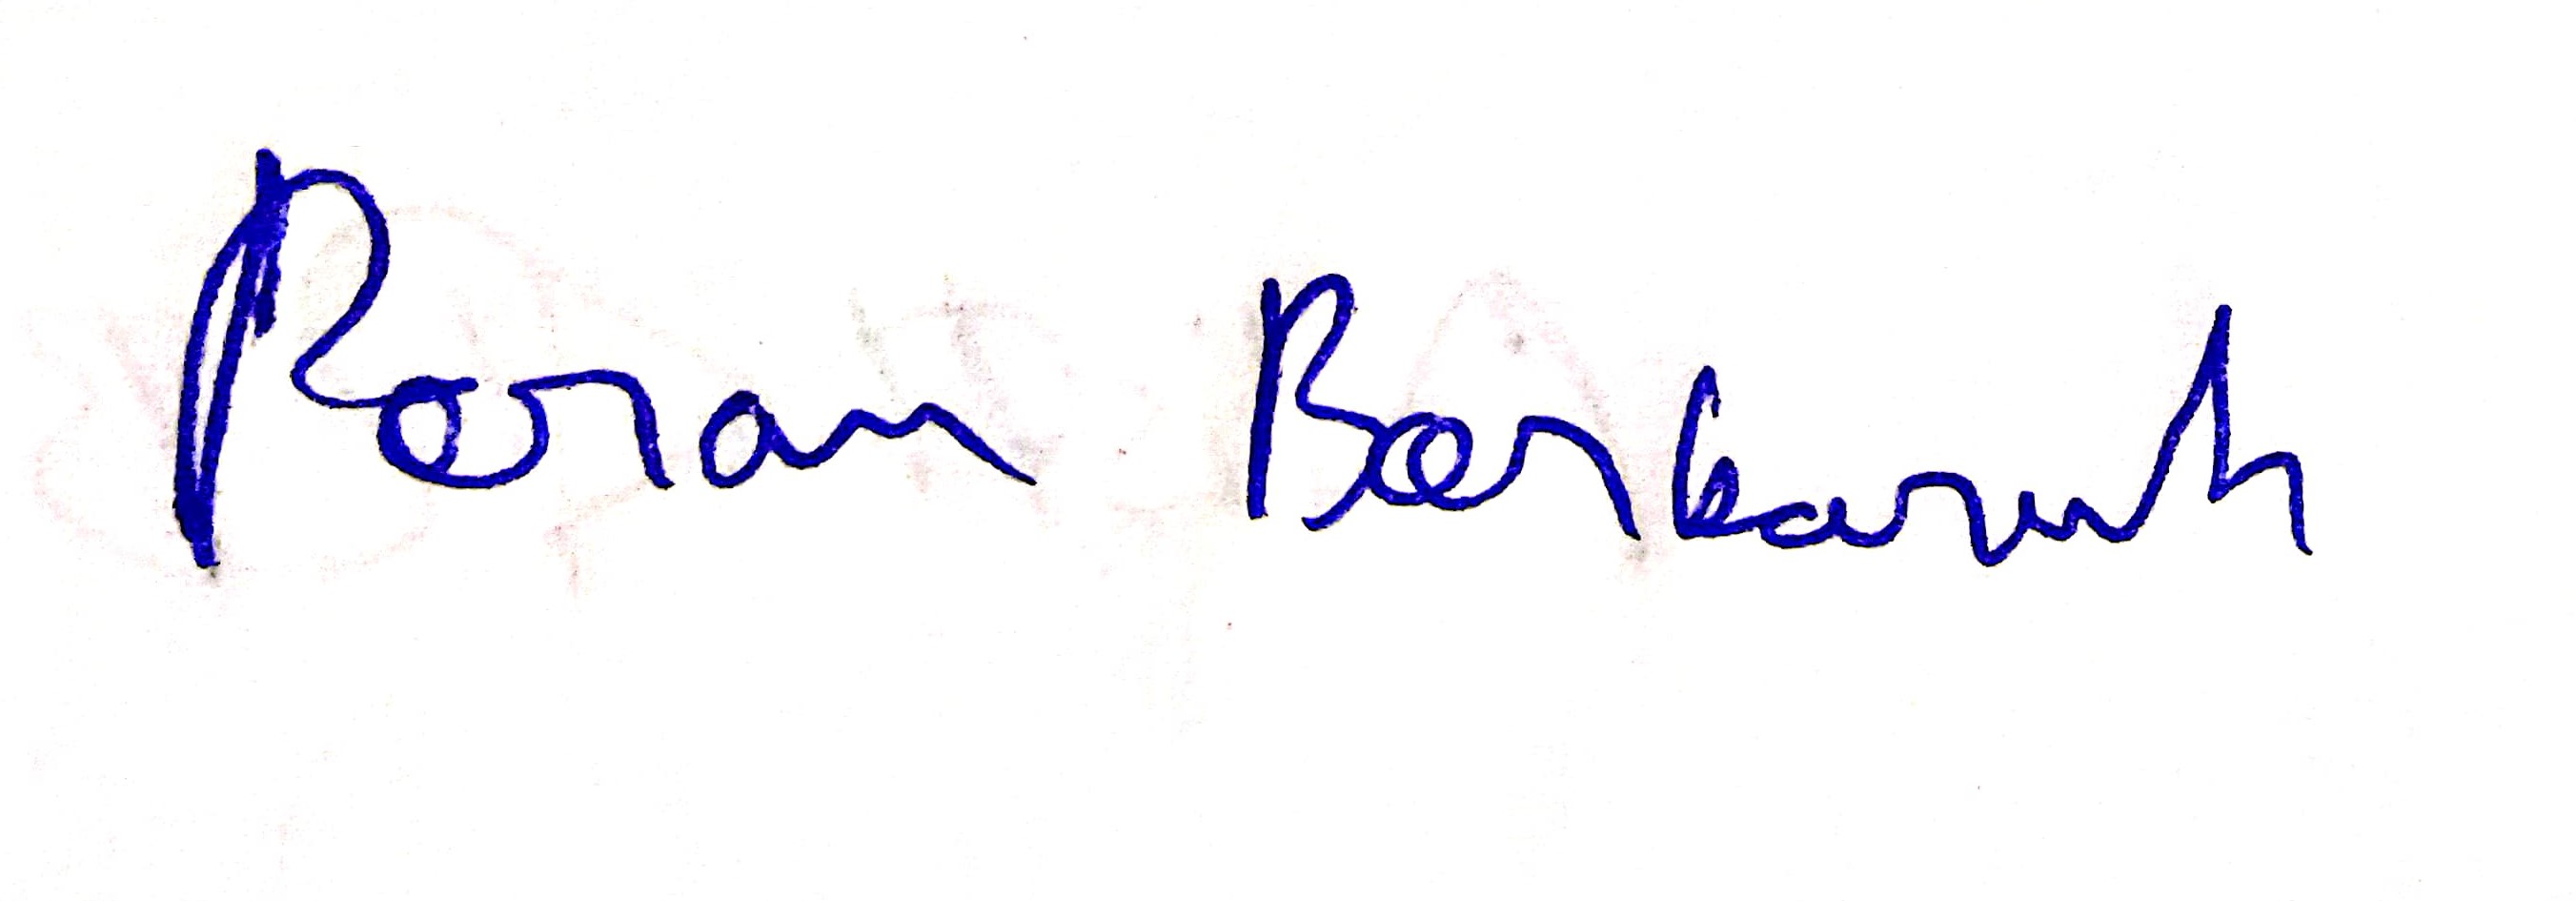 Poran Borkaruah